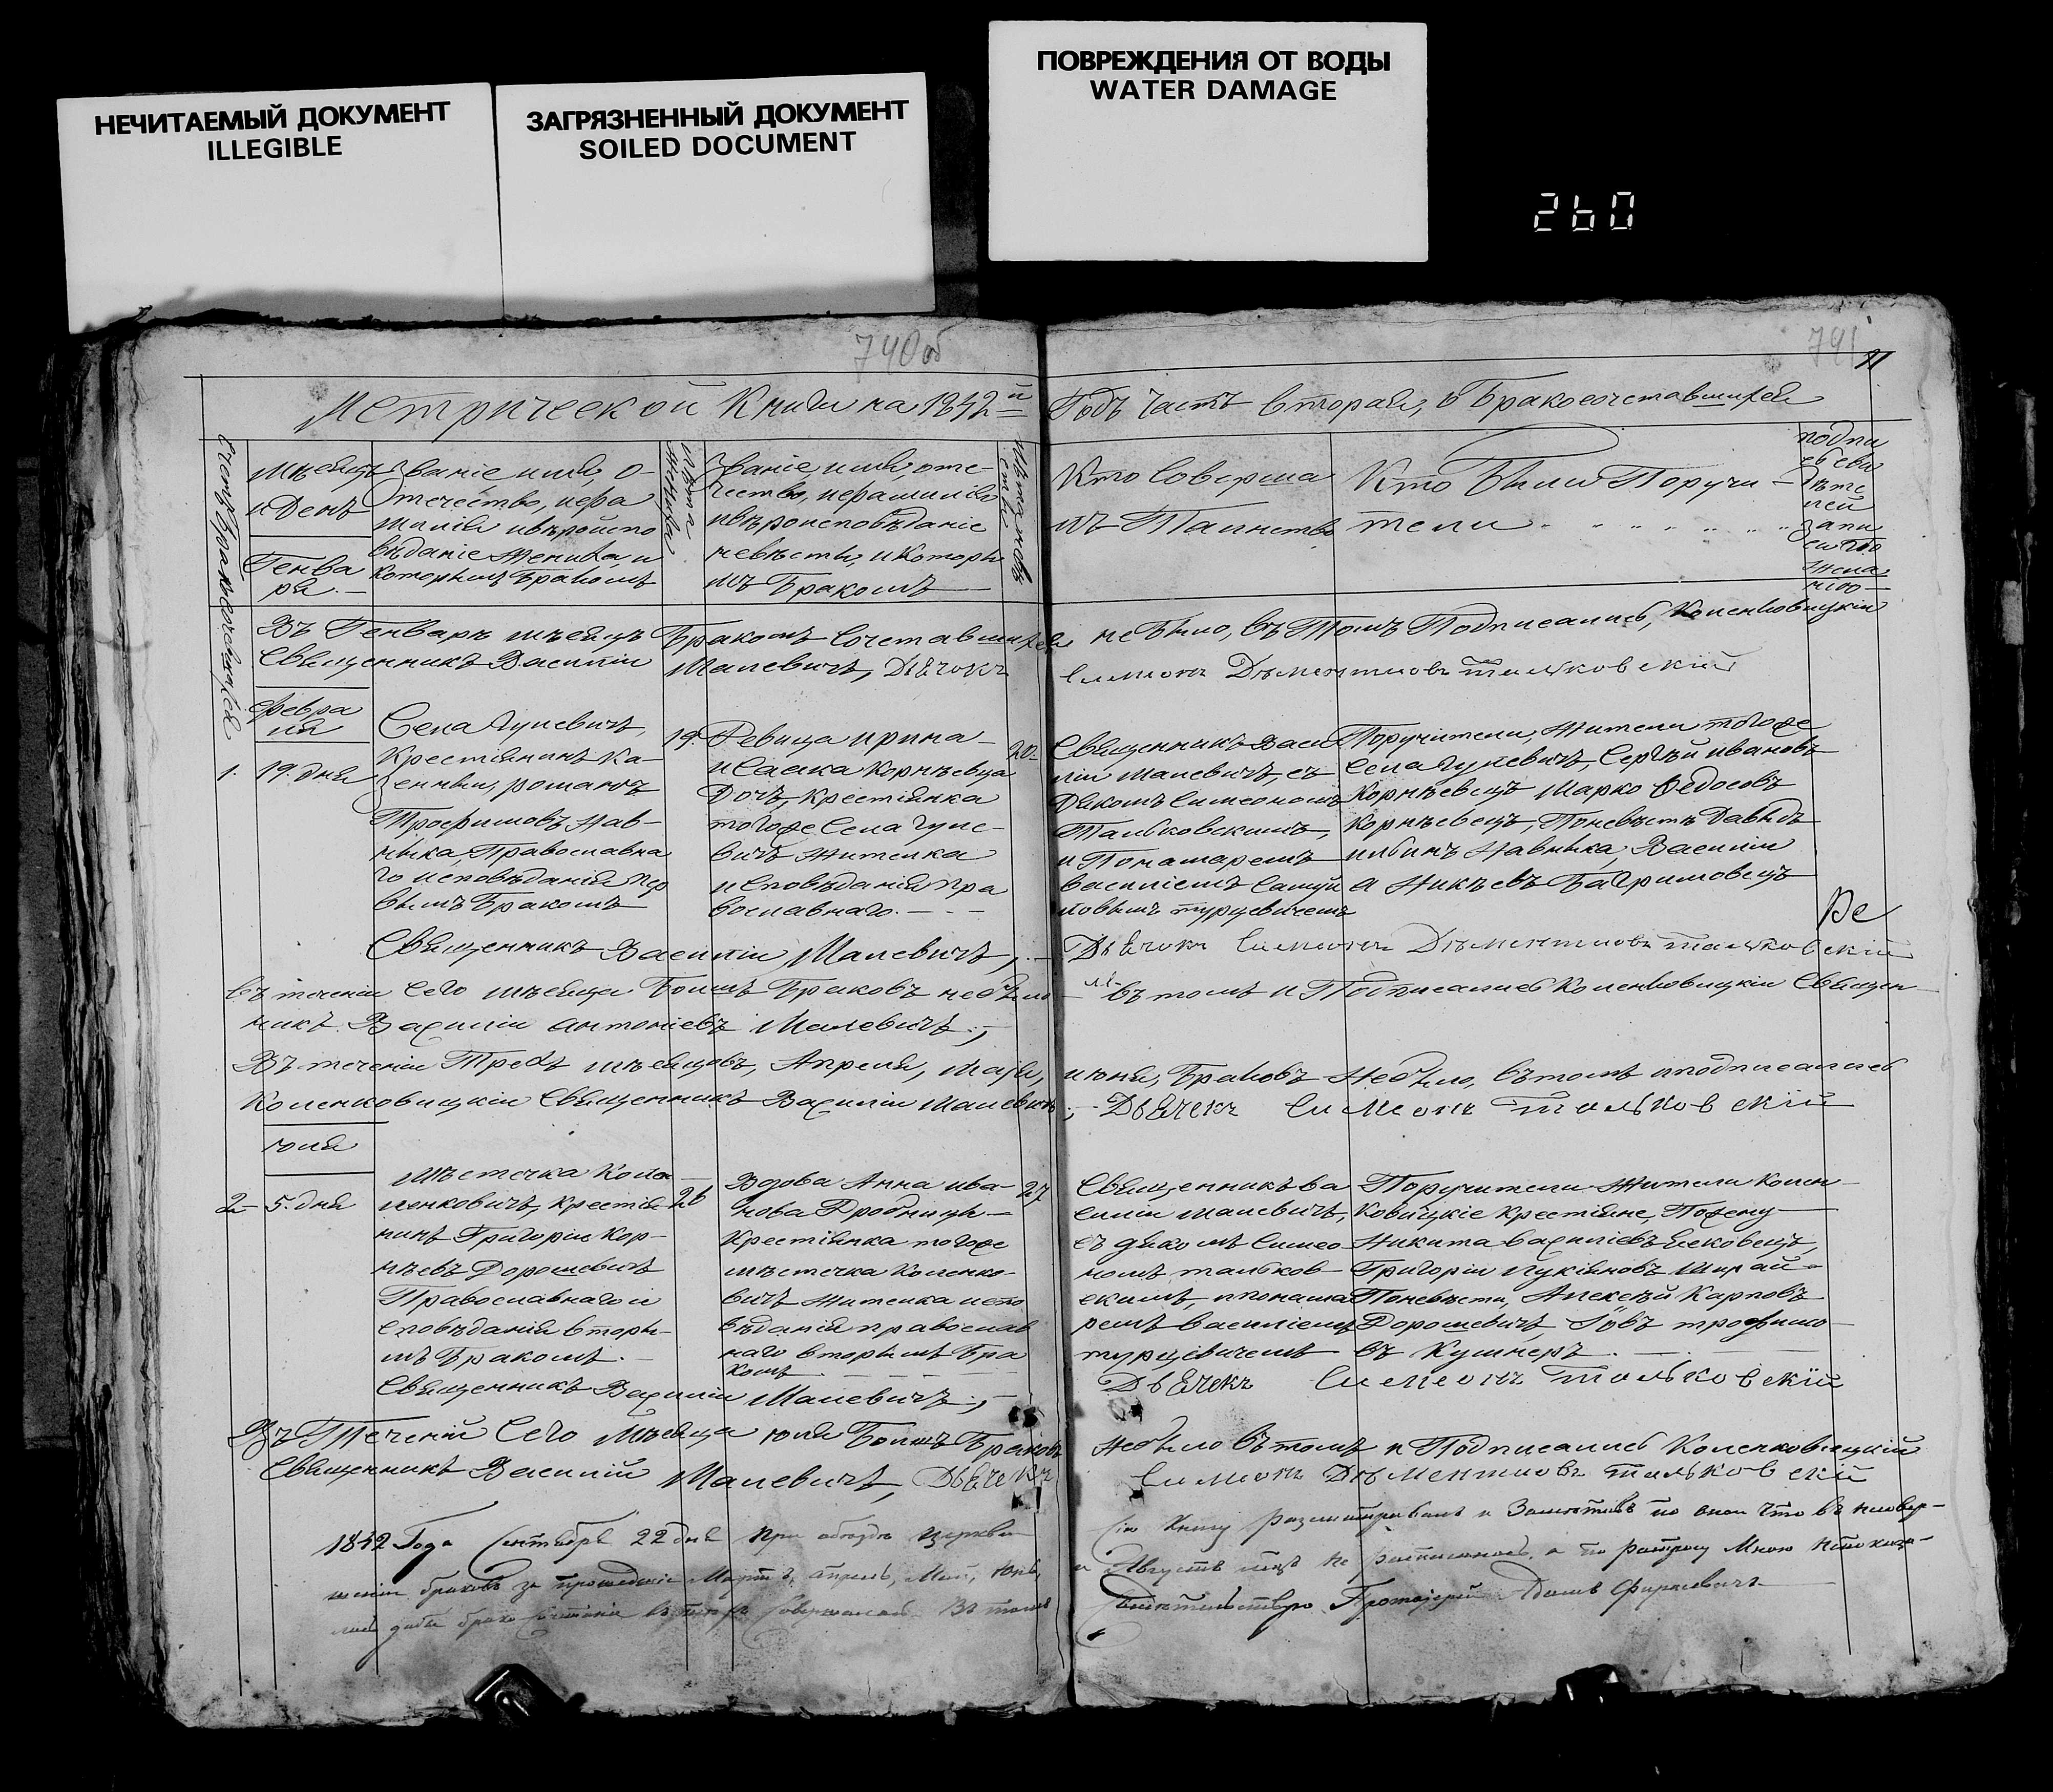 НЕЧИТАЕМЫЙ ДОКУМЕНТ
ILLEGIBLE
ЗАГРЯЗНЕННЫЙ ДОКУМЕНТ
SOILED DOCUMENT
ПОВРЕЖДЕНИЯ ОТ ВОДЫ
WATER DAMAGE
260
740об
741
11
Метрической Книги на 1842-й
Годъ Часть вторая, о Бракосочетавшихся
Счетъ Бракосочетавшихся
Мѣсяцъ
и День
Генва
ря.
Званіе имя, о-
течество, и фа
милія и вѣройспо
вѣданіе Жениха, и
которымъ Бракомъ
Лѣта
жениха
Званіе имя, оте-
чество, и фамилію
и вѣроисповѣданіе
невѣсты, и которы
мъ Бракомъ
Лѣта невѣ
сты
Кто Соверша
лъ Таинство
Кто Были Поручи-
тели
подпи
сь сви
дѣте
лей
запи
си по
жела
нію
Въ Генварѣ мѣсяцѣ Бракомъ Сочетавшихся
не было, въ Томъ Подписались, Коленковицкіи
Священникъ Василіи Малевичъ, Дьячокъ
Симеонъ Дѣментиовъ тальковскій
Февра
ля
1. 19. дня
Села Гулевичъ,
Крестіянинъ Ка-
зенный, романъ
Трофимовъ Нав-
ныка, Православна
го исповѣданія пер
вымъ Бракомъ
19.
Девица ирина
Исаака Корнѣевца
Дочь, крестіянка
тогоже Села гуле-
вичъ жителка
исповѣданія пра
вославнаго.
20
Священникъ Васи
ліи Малевичъ, съ
Дякомъ Симеономъ
Тальковскимъ,
и Пономаремъ
василіемъ Самуи
ловымъ турцевичемъ
Поручители, Жители тогоже
Села гулевичъ, Сергѣй ивановъ
Корнѣевецъ Марко Федосовъ
Корнѣевецъ, Поневѣстѣ Давыдъ
ильинъ Навныка, Василіи
Священникъ Василіи Малевичъ,
Дьячокъ Симеонъ Дѣментиовъ тальковскій
въ теченіи Сего мѣсяца Болшъ Браковъ не было
въ томъ и Подписались Коленковицкіи Священ
никъ Василіи антоніевъ Малевичъ.,
Въ теченіи Трехъ мѣсяцовъ, Апреля, Маія,
июня, Браковъ Небыло, въ томъ и подписались
Коленковицкіи Священникъ Василіи Малевичъ,
Дьячекъ Симеонъ тальковскій
юля
2 5. дня
Мѣстечка Коле
ленковичъ, крестія
нинъ Григоріи Кор-
нѣевъ Дорошевичъ
Православнаго и
сповѣданія вторы-
мъ Бракомъ.
26
Вдова Анна ива-
нова Дробница
Крестіянка тогоже
мѣстечка Коленко-
вичъ жителка испо
вѣданія православ
наго вторымъ Бра
комъ
27
Священникъ ва
силіи малевичъ,
съ дякомъ симео
номъ тальков-
скимъ, и понома
ремъ василіемъ
турцевичемъ
Поручители Жители Колен
ковицкіе Крестіяне, Пожену
Никита василіевъ
Григоріи лукіяновъ
Поневѣсты, Алексѣй Карповъ
Дорошевичъ, трофимо
въ Кушнеръ
Священникъ Василіи Малевичъ.,
Дьячекъ Симеонъ тальковскій
Въ Теченій Сего Мѣсяца юля Болшъ Браковъ
Небыло въ томъ и Подписались Коленковицкій
Священникъ Василій Малевичъ, Дьячекъ
Симеонъ Дѣментиовъ тальковскій
1842 Года Сентября 22 дня При обьездѣ церквей
Сію Книгу разсматривалъ и Замѣтивъ по оной что въ
браковъ за прошедшіе Мартъ, апрель, Май, Юнь,
и Августъ не росписанось, а по Мною
Въ томъ
Свидетельствую Протоіерей Адамъ